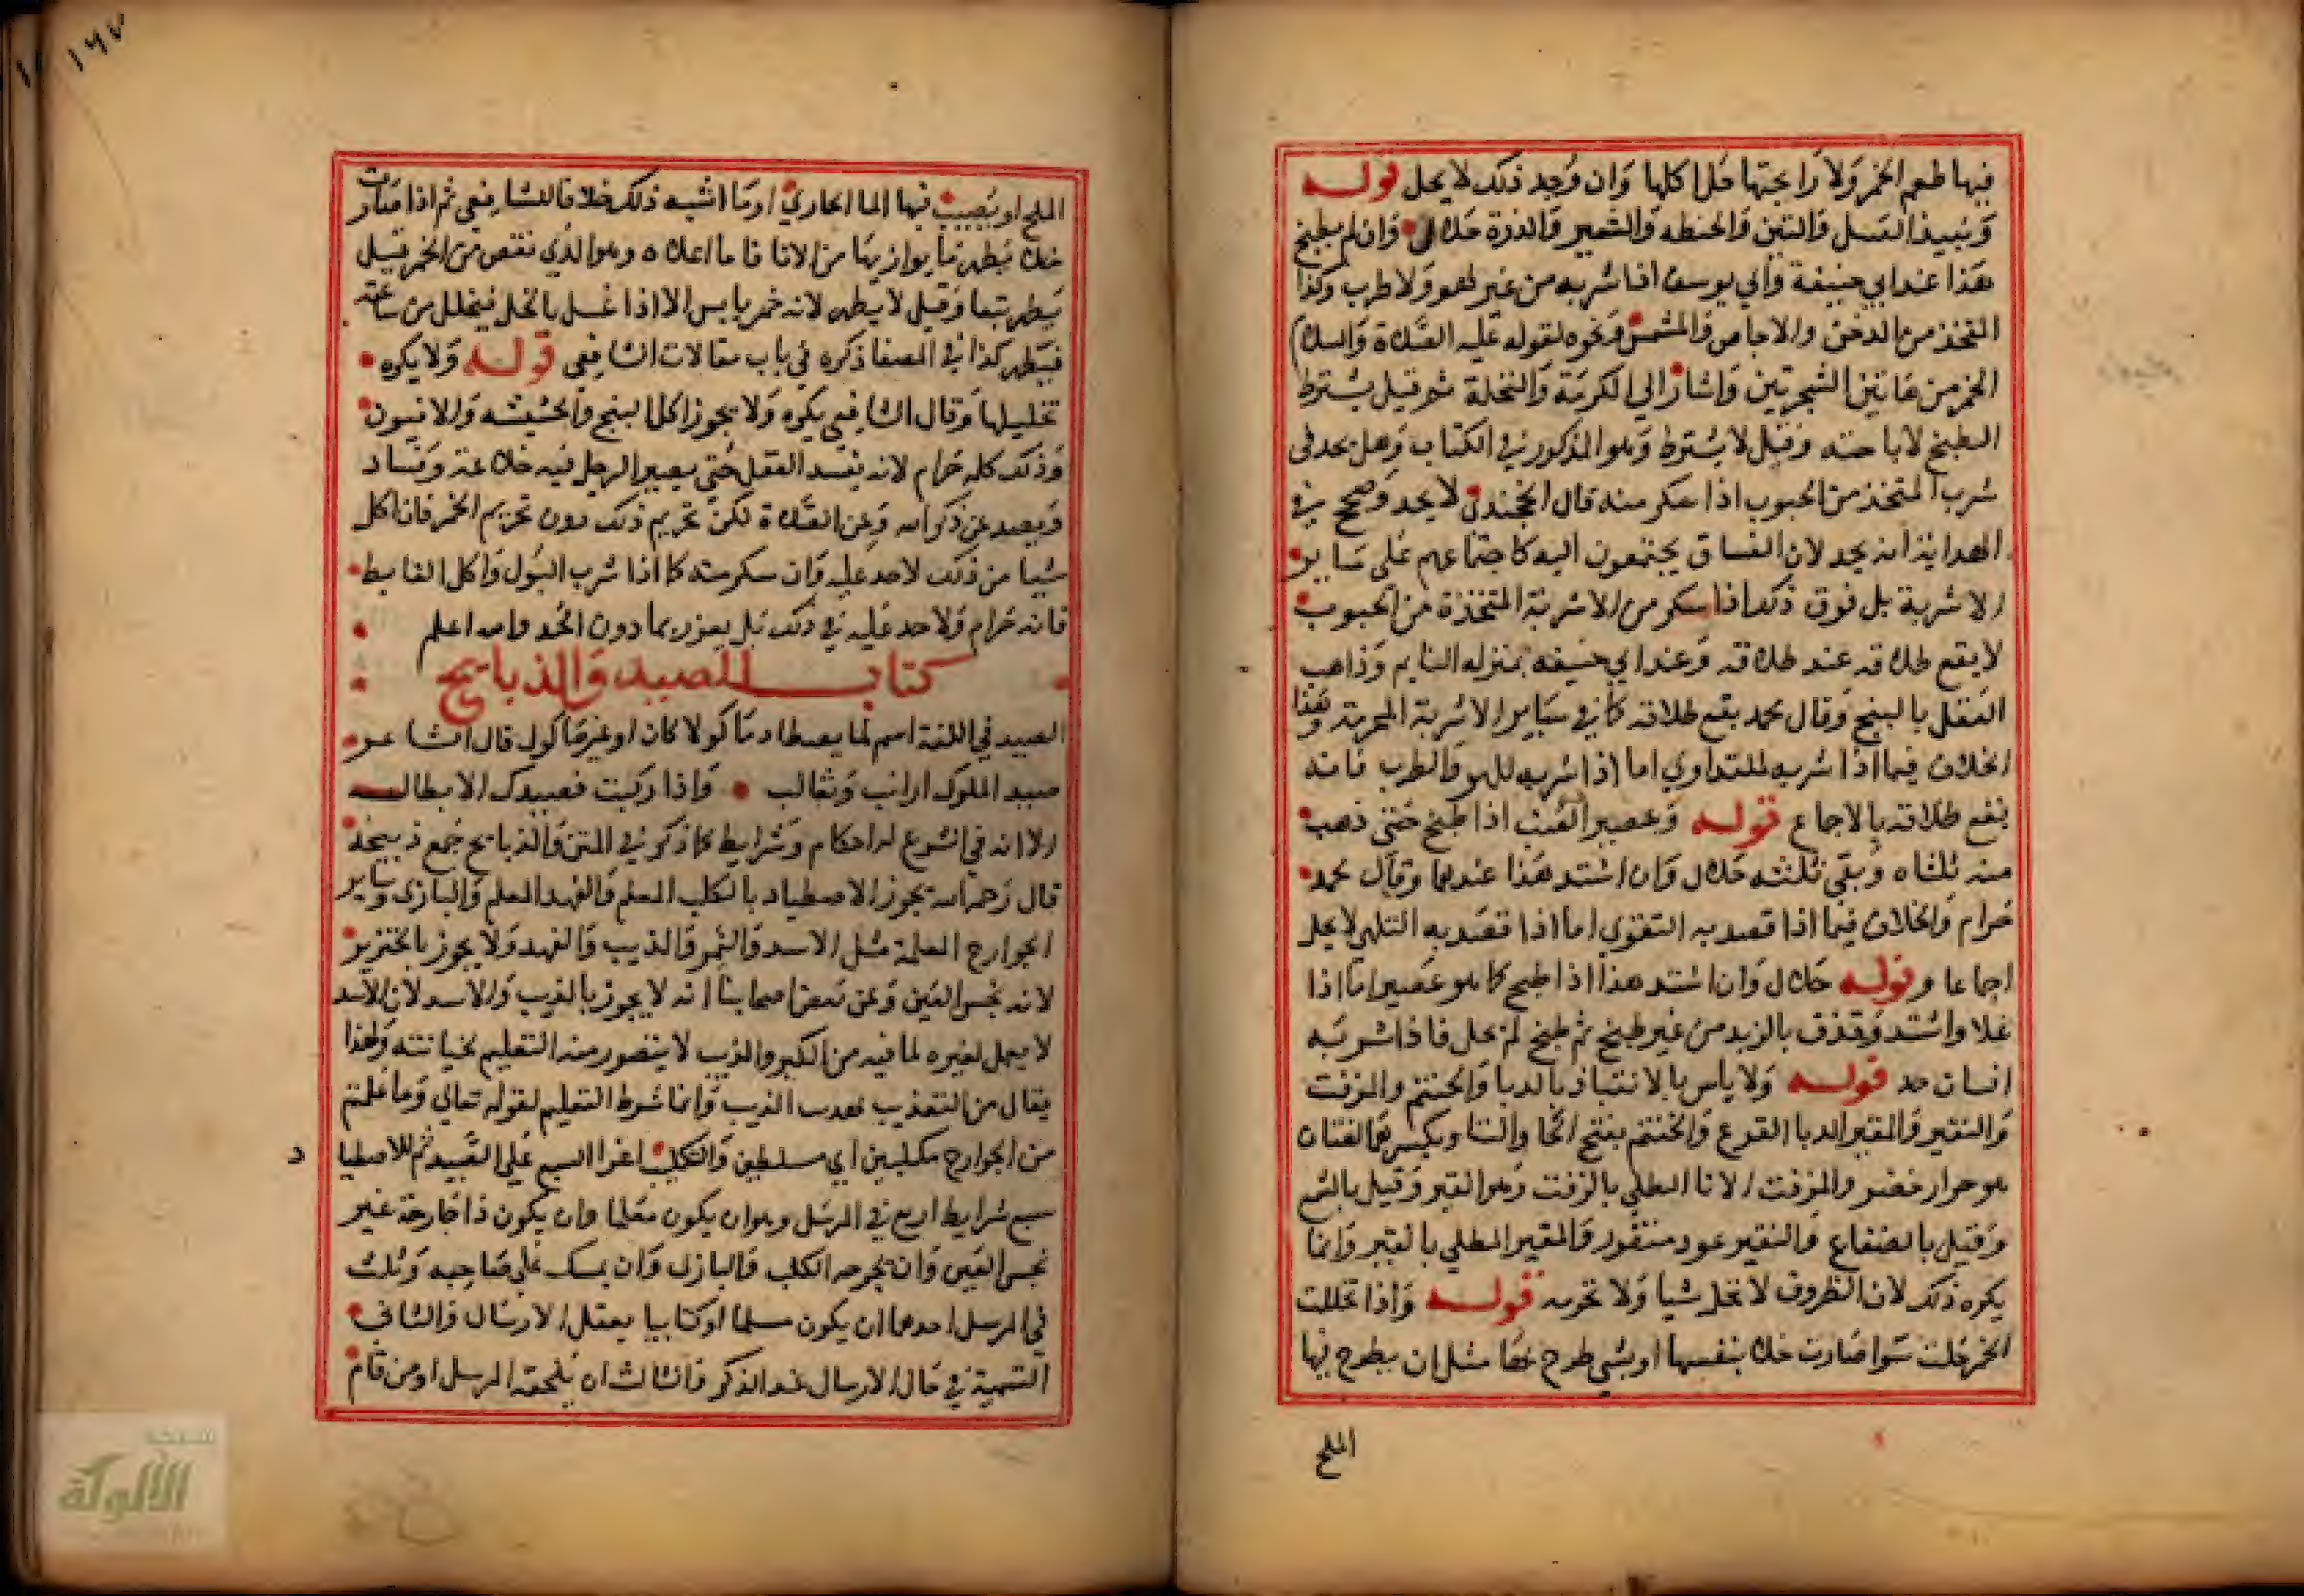 فيها طعم الخمر ولا رايحتها حل اكلها وان وجد ذلك لا يحل قوله
ونبيذ العسل والتين والحنطه والشعير والذرة حلال وان لم يطبخ
هذا عند ابي حنيفة وابي يوسف اذا شربه من غير لهو ولا طرب وكذا
المتخذ من الدخن والاجاص والمشمش ونحوه لقوله عليه الصلاة والسلام
الخمر من هاتين الشجرتين واشار الي الكرمة والنخلة ثم قيل يشترط
الطبخ لاباحته وقيل لا يشترط وهو المذكور في الكتاب وهل يحد في
شرب المتخذ من الحبوب اذا سكر منه قال الخجندي لا يحد وصحح في
الهداية انه يحد لان الفساق يجتمعون اليه كاجتماعهم على ساير
الاشربة بل فوق ذلك اذا سكر من الاشربة المتخذة من الحبوب
لا يقع طلاقه عند طلاقه وعند ابي حنيفه بمنزله النايم وذاهب
العقل بالبنج وقال محمد يقع طلاقه كما في ساير الاشربة المحرمة وهذا
الخلاف فيما اذا شربه للتداوي اما اذا شربه للهو والطرب فانه
يقع طلاقه بالاجماع قوله وعصير العنب اذا طبخ حتى ذهب
منه ثلثاه وبقي ثلثه حلال وان اشتد هذا عندهما وقال محمد
حرام والخلاف فيما اذا قصد به التقوي اما اذا قصد به التلهي لا يحل
اجماعا وقوله حلال وان اشتد هذا اذا طبخ كما هو عصير اما اذا
غلا واشتد وقذف بالزبد من غير طبخ ثم طبخ لم يحل فاذا شربه
انسان حد قوله ولا باس بالانتباذ بالدبا والحنتم والمزفت
والنقير والمقير الدبا القرع والحنتم بفتح الحا والتا وبكسرهما لغتان
هو جرار خضر والمزفت الانا المطلي بالزفت وهو القير وقيل بالشمع
وقيل بالصفاع والنقير عود منقور والمقير المطلي بالقير وانما
يكره ذلك لان الظروف لا تحل شيا ولا تحرمه قوله واذا تخللت
الخمر حلت سوا صارت خلا بنفسها او بشي طرح فيها مثل ان يطرح فيها
الملح
١٦٧
الملح او يصيب فيها الما الحاري او ما اشبه ذلك خلافا للشافعي ثم اذا صارت
خلا يطهر ما يوازيها من الانا فاما اعلاه وهو الذي نقص من الخمر قيل
يطهر تبعا وقيل لا يطهر لانه خمر يابس الا اذا غسل بالخل فيتخلل من ساعته
فيطهر كذا في المصفا ذكره في باب مقالات الشافعي قوله ولا يكره
تخليلها وقال الشافعي يكره ولا يجوز اكل البنج والحشيشه والافيون
وذلك كله حرام لانه يفسد العقل حتى يصير الرجل فيه خلاعة وفساد
ويصد عن ذكر الله وعن الصلاة لكن تحريم ذلك دون تحريم الخمر فان اكل
شيا من ذلك لا حد عليه وان سكر منه كما اذا شرب البول واكل الغايط
فانه حرام ولا حد عليه في ذلك بل يعزر بما دون الحد والله اعلم
كتاب الصيد والذبايح
الصيد في اللغة اسم لما يصطاد ماكولا كان او غير ماكول قال الشاعر
صيد الملوك ارانب وثعالب واذا ركبت فصيدك الابطال
الا انه في الشرع له احكام وشرايط كما ذكر في المتن والذبايح جمع ذبيحة
قال رحمه الله يجوز الاصطياد بالكلب المعلم والفهد المعلم والبازي وساير
الجوارح المعلمة مثل الاسد والنمر والذيب والفهد ولا يجوز بالخنزير
لانه نجس العين وعن بعض اصحابنا انه لا يجوز بالذيب والاسد لان الاسد
لا يعمل لغيره لما فيه من الكبر والذيب لا يتصور منه التعليم لخيانته ولهذا
يقال من التعذيب تهديب الذيب وانما شرط التعليم لقوله تعالي وما علمتم
من الجوارح مكلبين اي مسلطين والتكليب اغرا السبع على الصيد ثم للاصطياد
سبع شرايط اربع في المرسل وهو ان يكون معلما وان يكون ذا جارحة غير
نجس العين وان يجرحه الكلب والبازي وان يمسك على صاحبه وثلث
في المرسل احدهما ان يكون مسلما او كتابيا يعقل الارسال والثاني
التسمية في حال الارسال عند الذكر والثالث ان يلحقه المرسل او من قام
شبكة
الألوكة